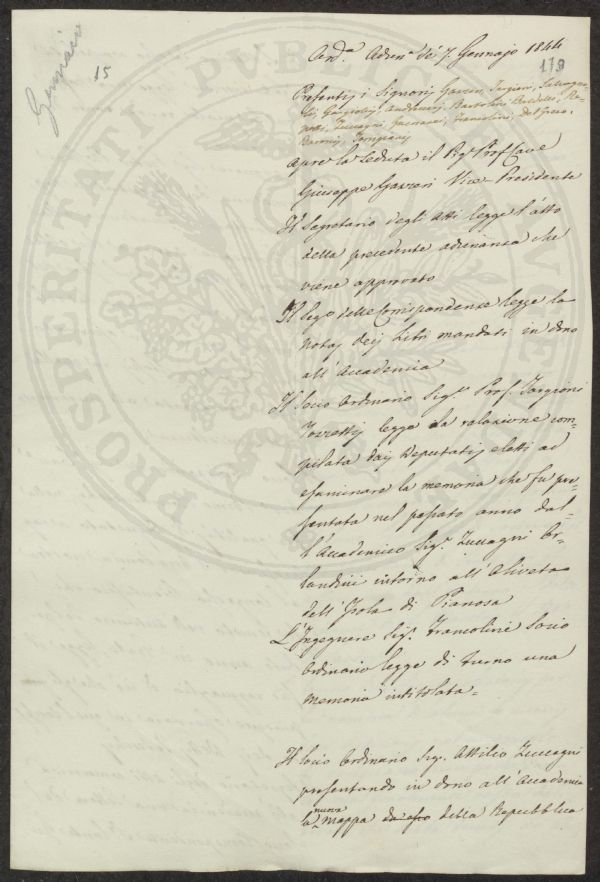 Gennaio
15
179
Ord.ª Adun.ª de' 7. Gennajo 1844
Presentij i Signorij Gazzeri, Targioni, Selvagno-
li, Andreucci, Bartolini Baldelli, Ri-
dolfi, Zuccagni, Guerrazzi, Francolini, del Greco,
Taruffi, Tartini
apre la seduta il Sig.r Prof. Cav.e
Giuseppe Gazzeri Vice-Presidente
Il Segretario degli Atti legge l'atto
della precedente adunanza che
viene approvato
Il Seg.o delle Corrispondenze legge la
nota deij Libri mandati in dono
all'Accademia
Il Socio Ordinario Sig.r Prof. Targioni
Tozzettij legge la relazione com-
pilata daij Deputatij eletti ad
esaminare la memoria che fu pre-
sentata nel passato anno dal-
l'Accademico Sig.r Zuccagni Or-
landini intorno all'Oliveta
dell'Isola di Pianosa
L'Ingegnere Sig.r Francolini Socio
Ordinario legge di turno una
memoria intitolata=
Il Socio Ordinario Sig. Attilio Zuccagni
presentando in dono all'Accademia
la nuova Mappa della Repubblica
PROSPERITATI PUBLICAE AUGENDAE